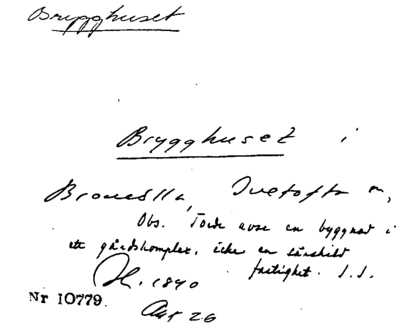 Brygghuset
Brygghuset i
Bromölla, Ivetofta n,
Obs. Torde avse en byggnad i
ett gårdskomplex, icke en särskild
fastighet. I.I.
1890
Nr 10779.
26